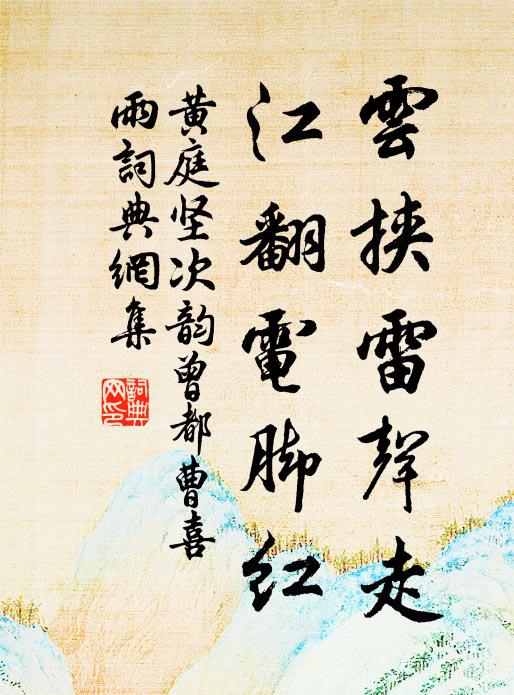 雲挾雷聲走
江翻電脚紅
黄庭坚次韵曾都曹喜
雨詞典網集
詞典网印